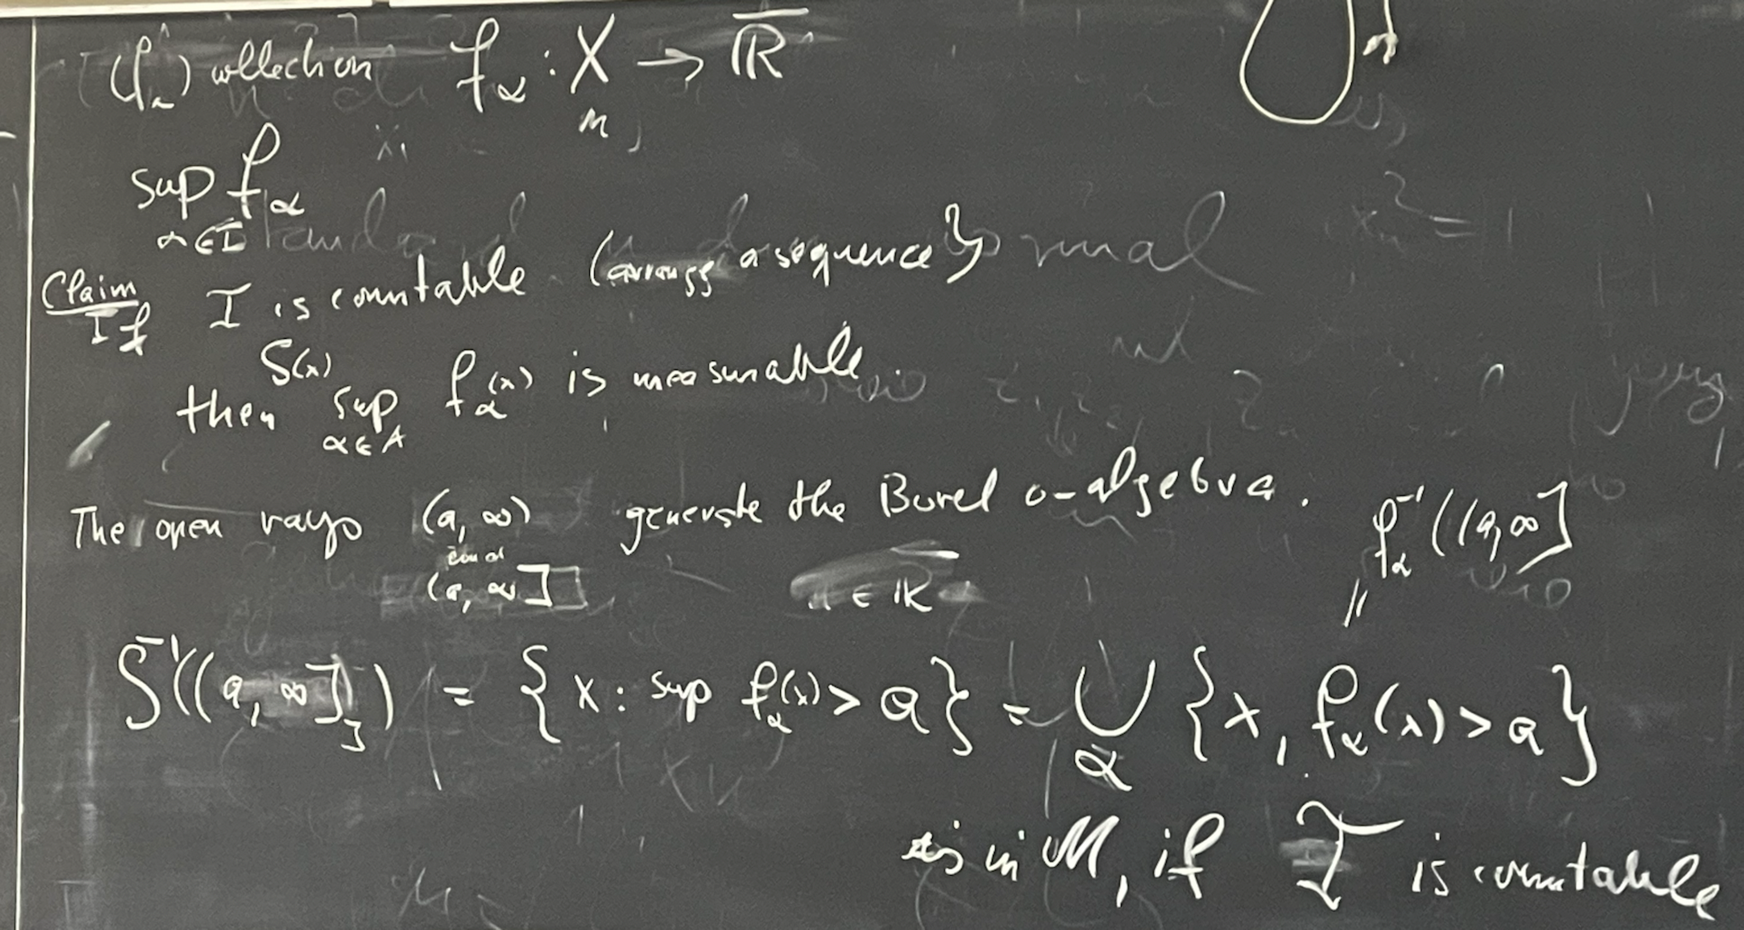 (f_α) collection f_α : X → ℝ̄
m
sup f_α
α∈I
Claim
If I is countable (arrange a sequence)
S(x)
then sup f_α(x) is measurable.
α∈A
The open rays (a, ∞) generate the Borel σ-algebra.
and
(a, ∞]
∈ ℝ
f_α⁻¹((a, ∞]
||
S⁻¹((a, ∞]) = {x : sup f_α(x) > a} = ⋃_α {x, f_α(x) > a}
is in M, if I is countable